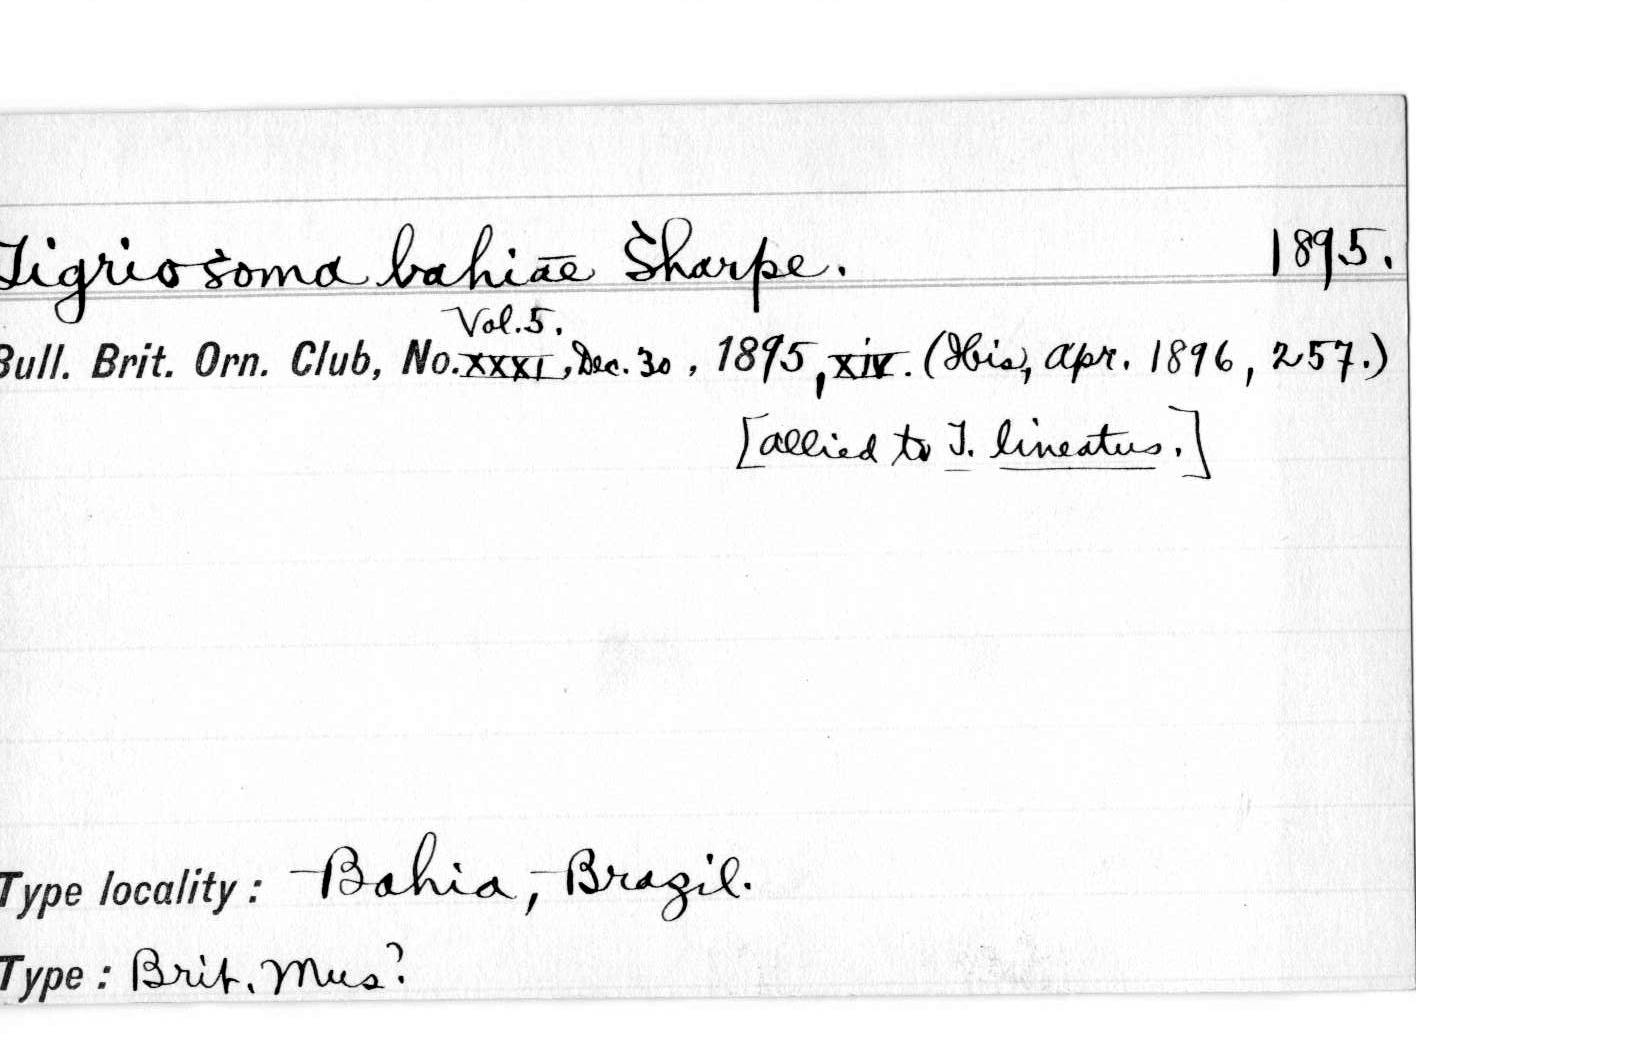 Tigriosoma bahiae Sharpe. 1895.
Vol. 5.
Bull. Brit. Orn. Club, No. XXXI, Dec. 30, 1895, xiv. (Ibis, Apr. 1896, 257.)
[allied to T. lineatus.]
Type locality: Bahia, Brazil.
Type: Brit. Mus?